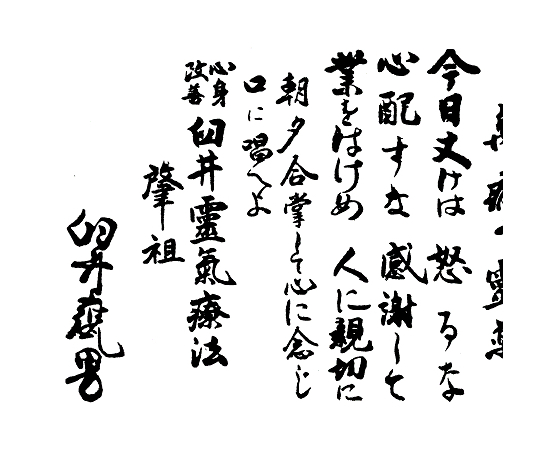 萬病の靈薬
今日丈けは 怒るな
心配すな 感謝して
業をはけめ 人に親切に
朝夕合掌して心に念じ
口に唱へよ
心身改善 臼井靈氣療法
肇祖
臼井甕男